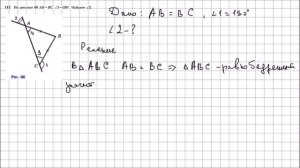 112 На рисунке 60 AB = BC, ∠1 = 130°. Найдите ∠2.
Дано: AB = BC, ∠1 = 130°
∠2 - ?
Решение
В △ABC AB = BC ⇒ △ABC - равнобедренный
значит
A
B
C
1
Рис. 60